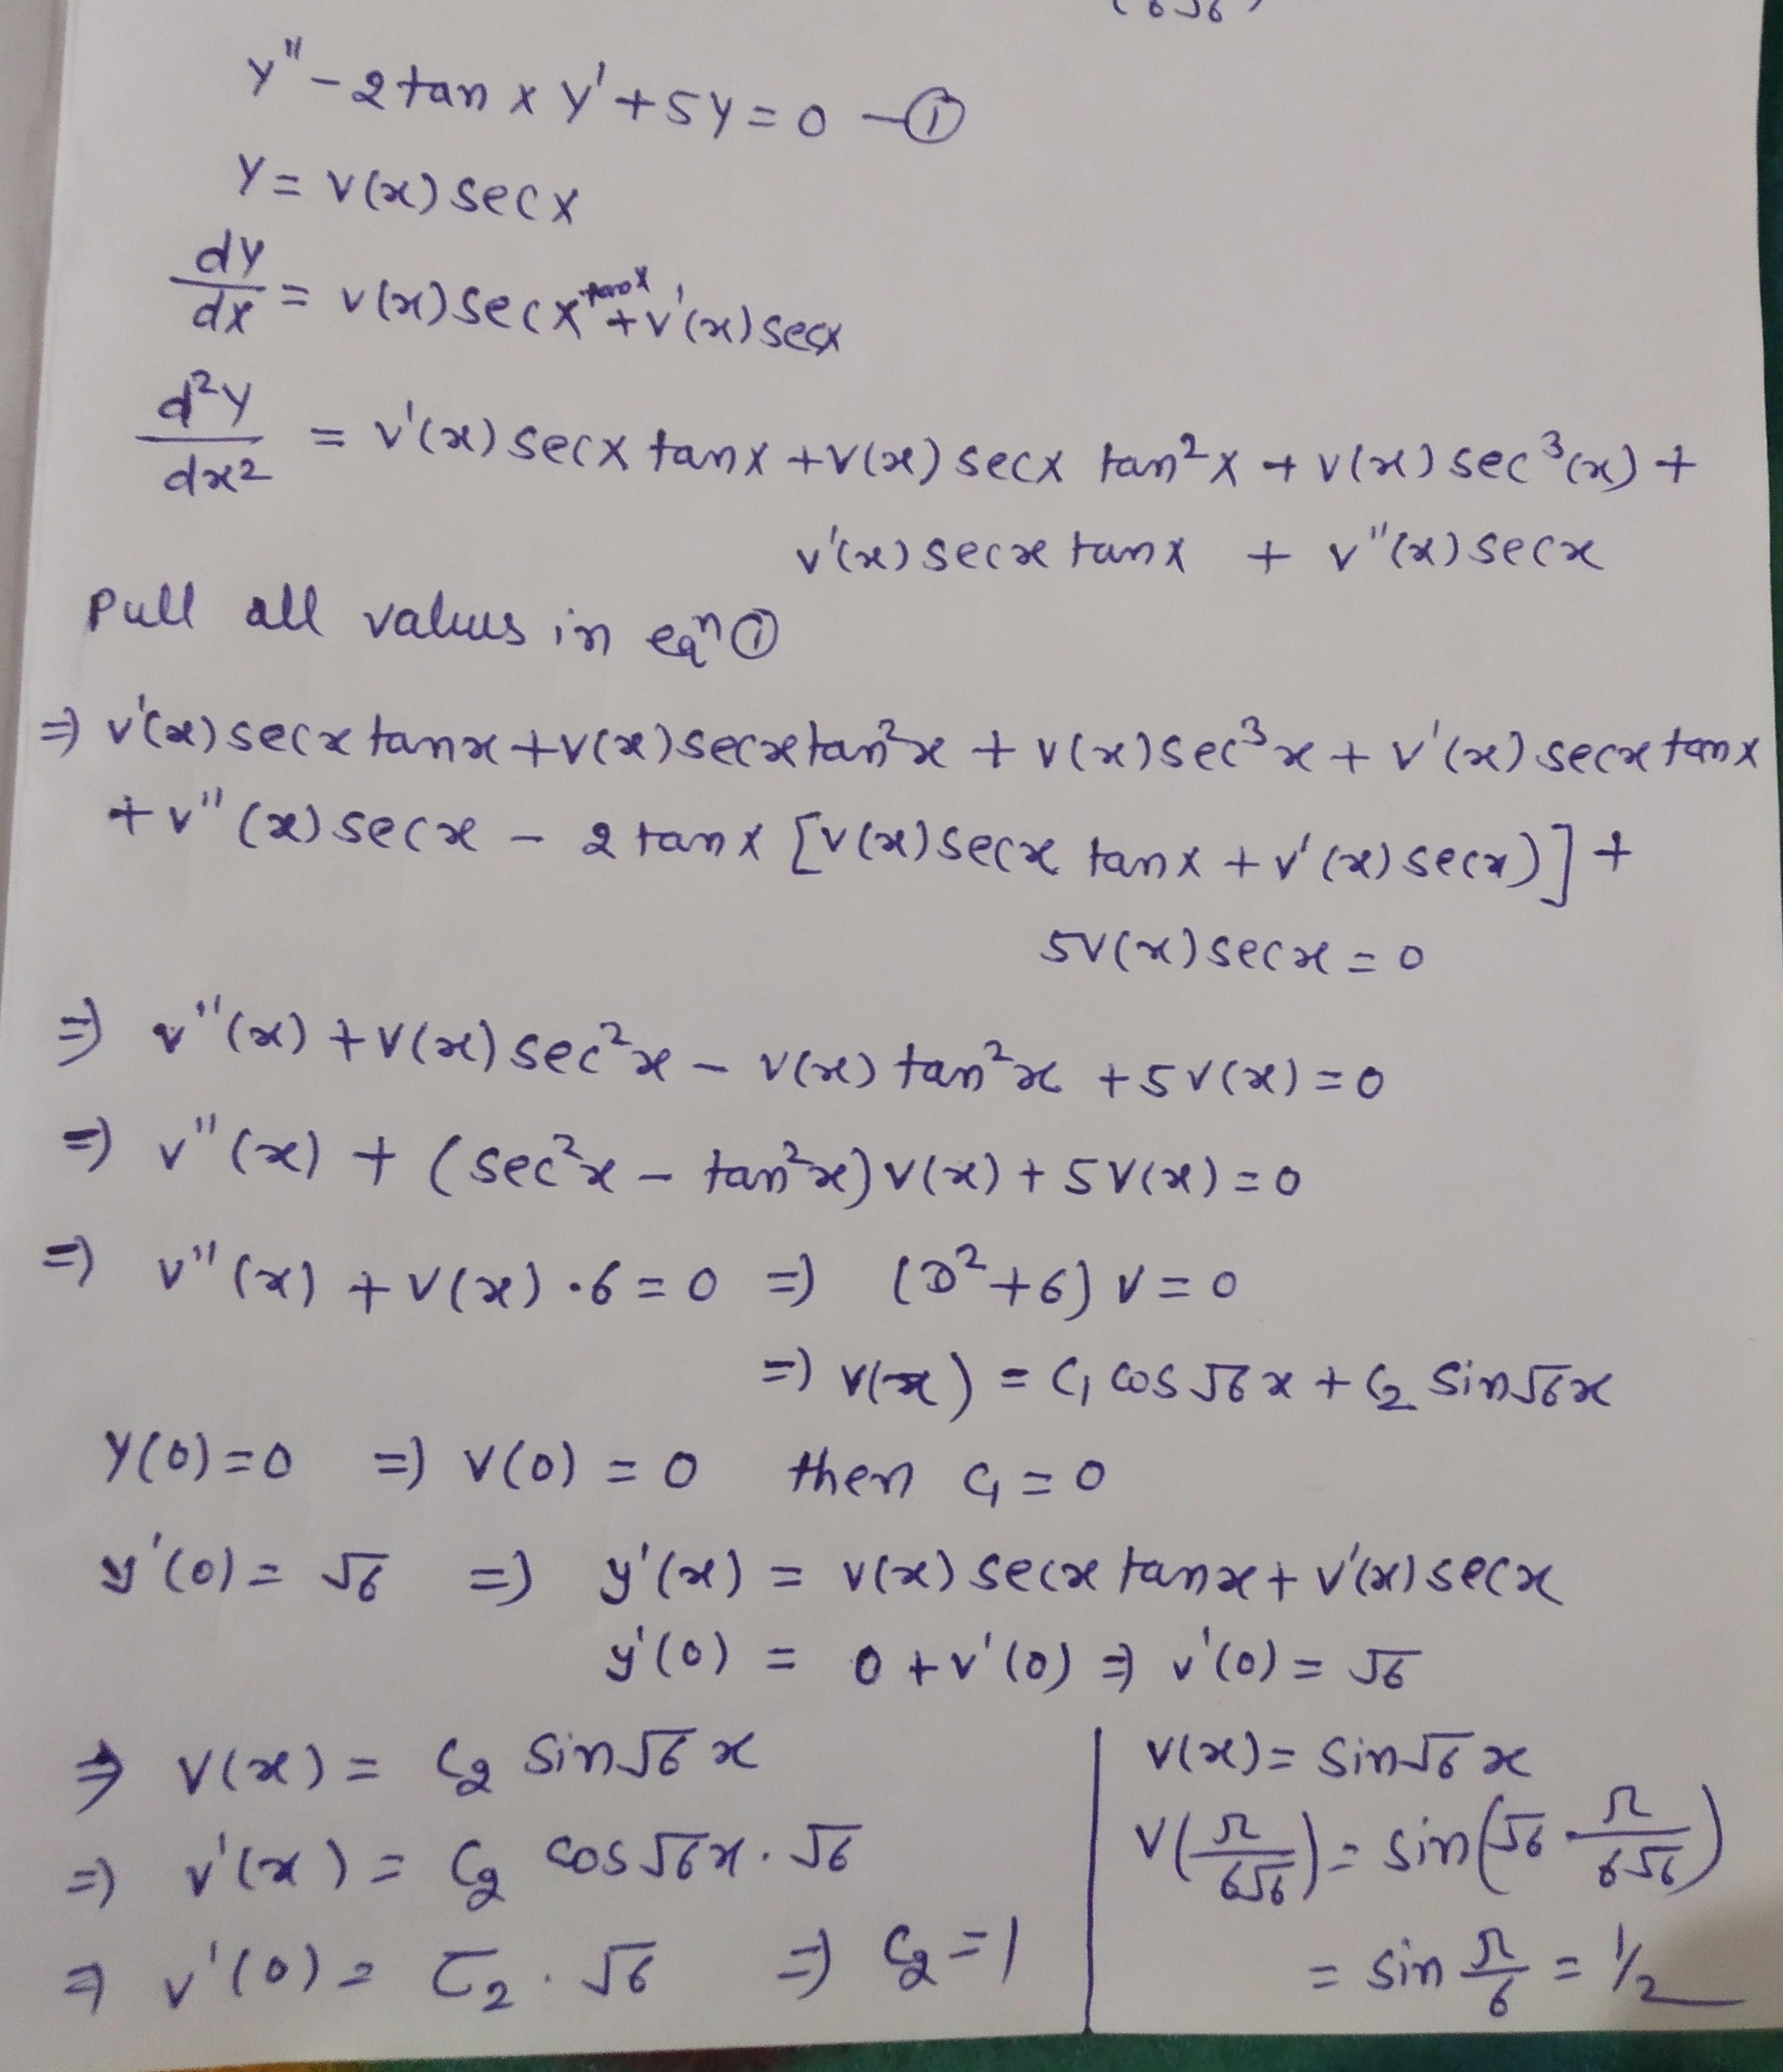 y'' - 2 tan x y' + 5y = 0 — ①
y = v(x) sec x
dy/dx = v(x) sec x tan x + v'(x) sec x
d²y/dx² = v'(x) sec x tan x + v(x) sec x tan² x + v(x) sec³(x) +
v'(x) sec x tan x + v''(x) sec x
Pull all values in eqⁿ ①
⇒ v'(x) sec x tan x + v(x) sec x tan² x + v(x) sec³ x + v'(x) sec x tan x
+ v''(x) sec x - 2 tan x [v(x) sec x tan x + v'(x) sec x)] +
5v(x) sec x = 0
⇒ v''(x) + v(x) sec² x - v(x) tan² x + 5v(x) = 0
⇒ v''(x) + (sec² x - tan² x) v(x) + 5v(x) = 0
⇒ v''(x) + v(x) · 6 = 0 ⇒ (D² + 6) v = 0
⇒ v(x) = c₁ cos √6 x + c₂ sin √6 x
y(0) = 0 ⇒ v(0) = 0 then c₁ = 0
y'(0) = √6 ⇒ y'(x) = v(x) sec x tan x + v'(x) sec x
y'(0) = 0 + v'(0) ⇒ v'(0) = √6
⇒ v(x) = c₂ sin √6 x
⇒ v'(x) = c₂ cos √6 x · √6
⇒ v'(0) = c₂ · √6 ⇒ c₂ = 1
v(x) = sin √6 x
v(π/6√6) = sin(√6 · π/6√6)
= sin π/6 = 1/2